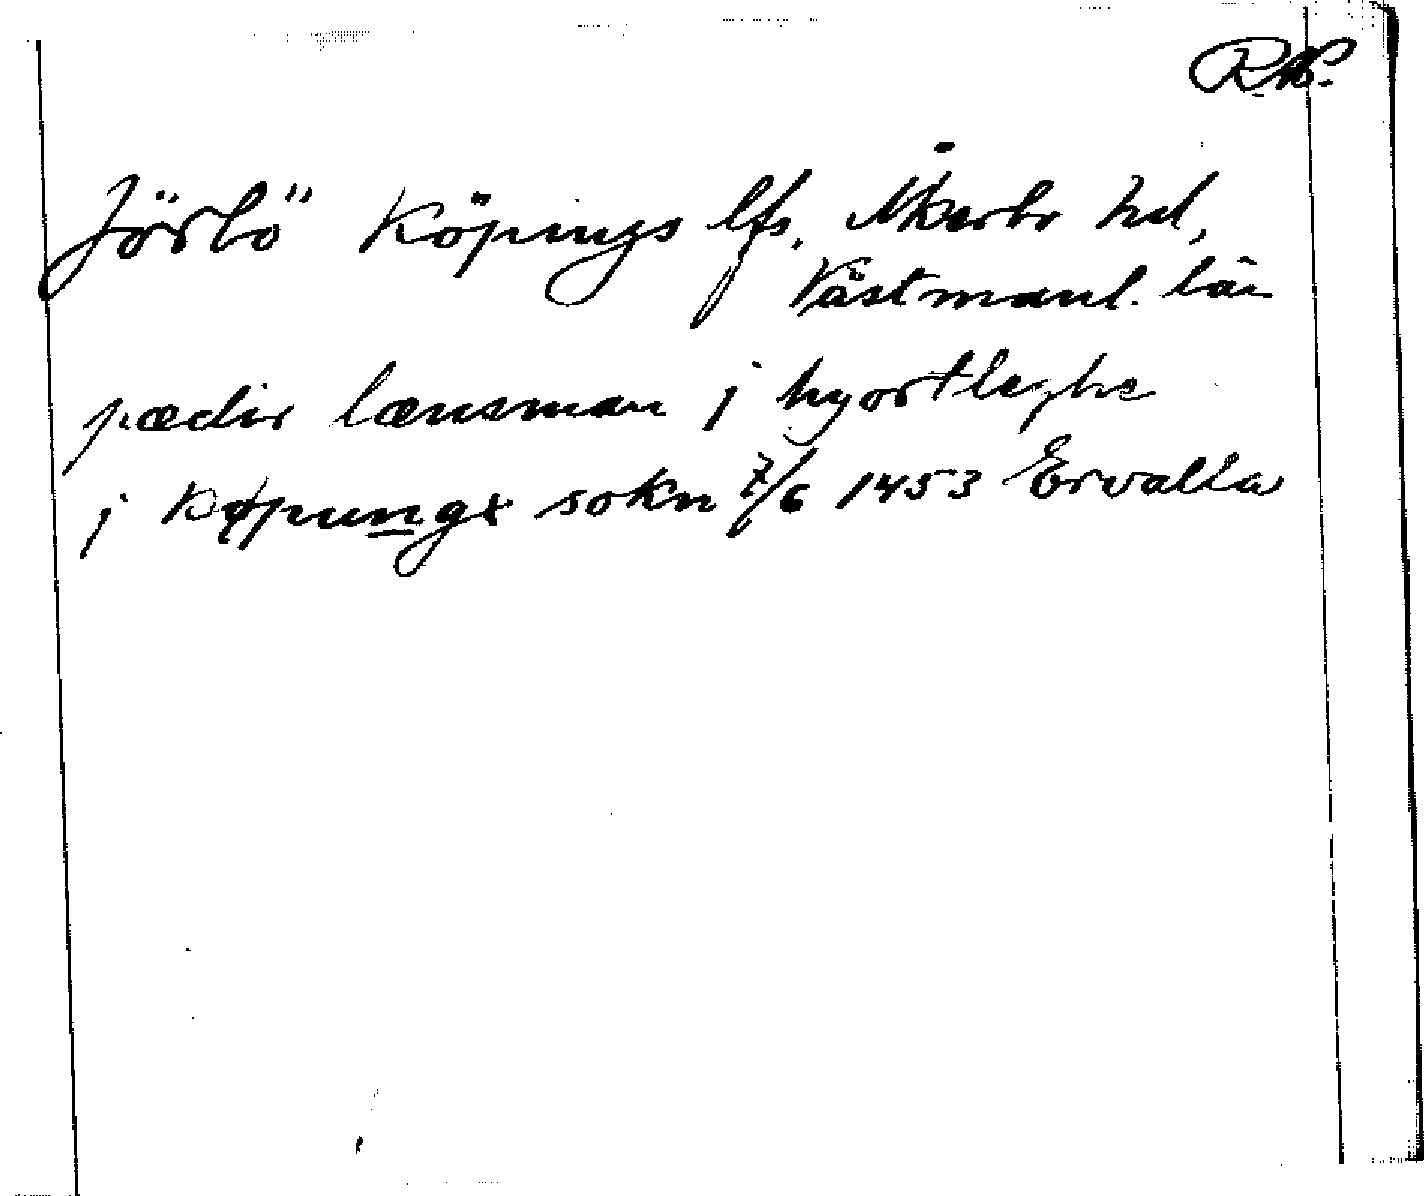 RAP.
Jörlö Köpings lfs. Åkerbo hd,
Västmanl. län
pædir lænsman j hyortleghe
j Køpungx sokn 7/6 1453 Ervalla